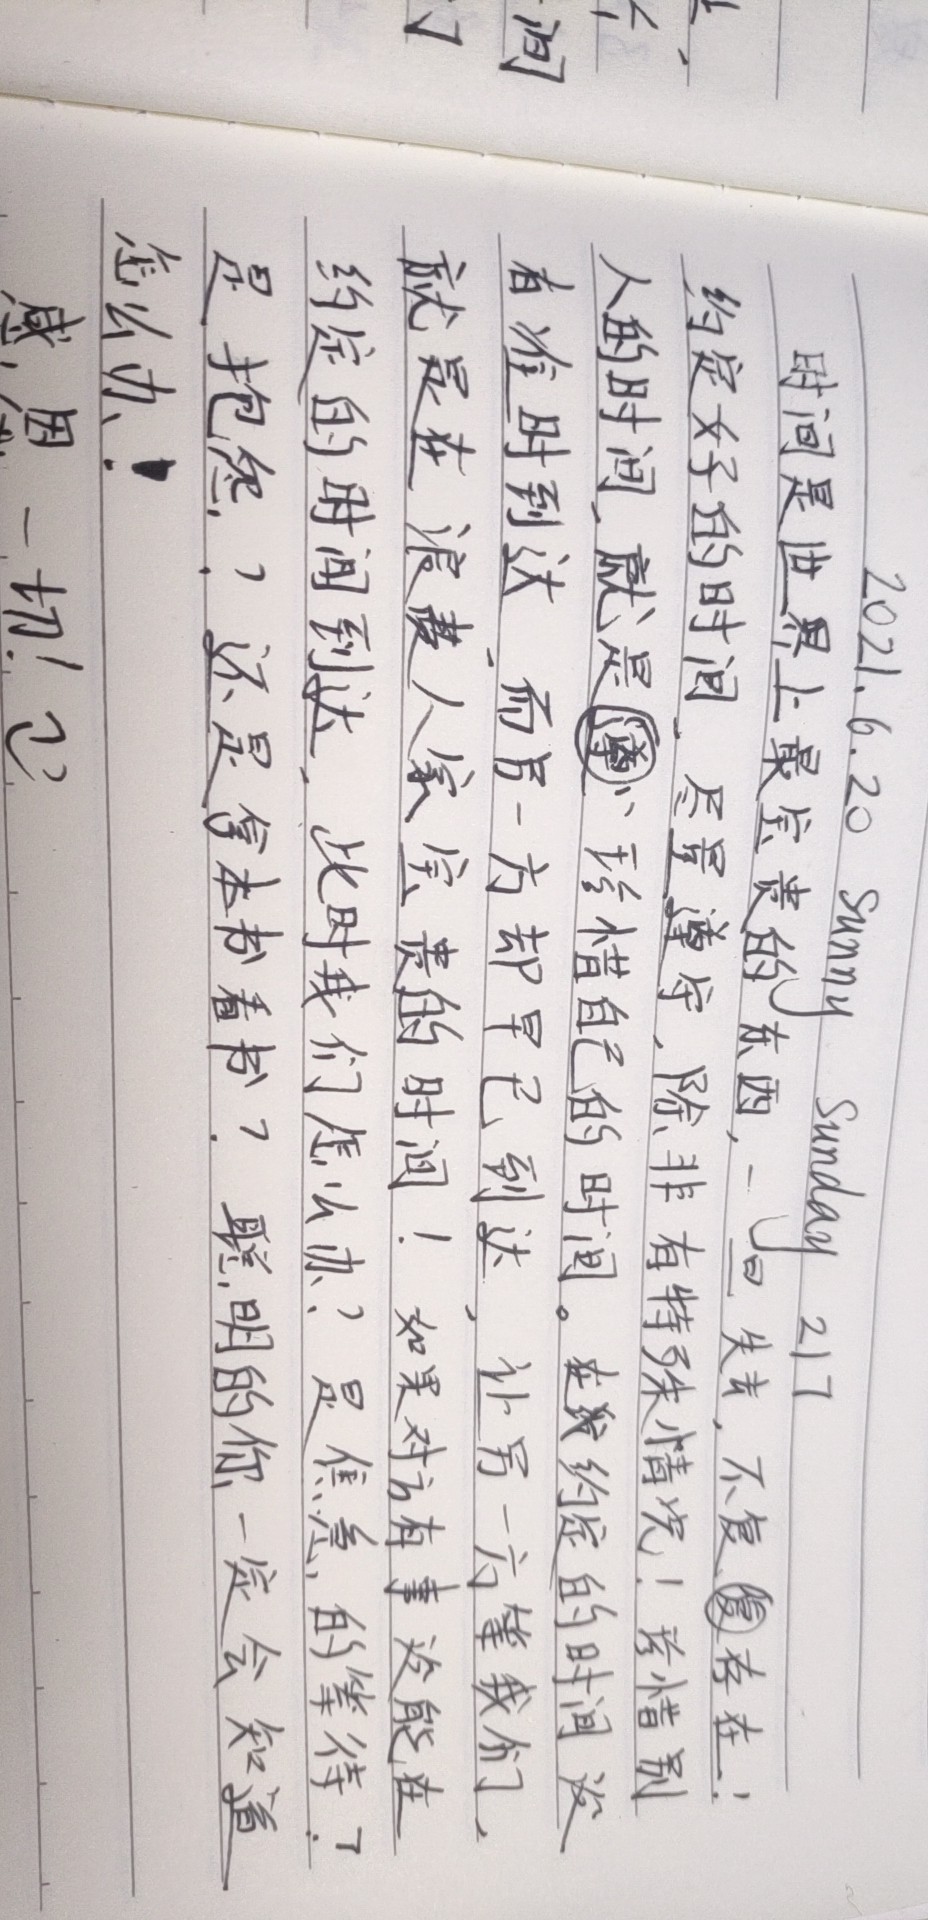 2021.6.20 Sunny Sunday 217
时间是世界上最宝贵的东西,一旦失去,不复存在!
约定好的时间、尽量遵守,除非有特殊情况!珍惜别
人的时间,就是珍惜自己的时间。在我约定的时间没
有准时到达、而另一方却早已到达,让另一方等我们、
就是在浪费人家宝贵的时间!如果对方有事没能在
约定的时间到达,此时我们怎么办?是焦急的等待?
是抱怨?还是拿本书看书?聪明的你一定会知道
怎么办!
感恩一切!